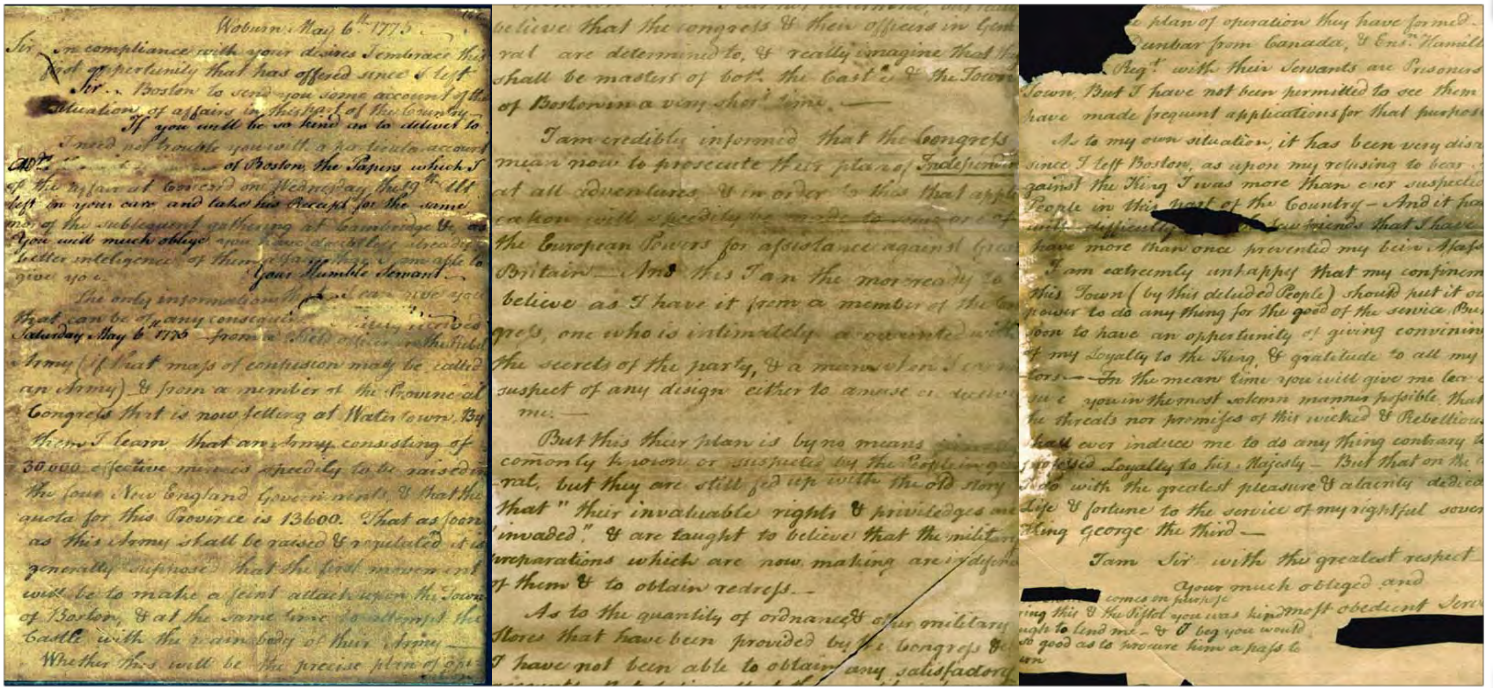 Woburn May 6th 1775
Sir In compliance with your desires I embrace this
first opportunity that has offered since I left
Sir Boston to send you some account of the
situation of affairs in this part of the Country
If you will be so kind as to deliver to
I need not trouble you with a particular account
of Boston, the Papers which I
of the affair at Concord on Wednesday the 19th Ult
left in your care and take his Receipt for the same
nor of the subsequent gathering at Cambridge &c, as
You will much oblige you have doubtless already
better intelegence of them than I am able to
give you. Your Humble Servant
The only information that I can give you
that can be of any consequence
Saturday May 6th 1775 from a Field officer in the Rebel
Army (if that mass of confusion may be called
an Army) & from a member of the Provincial
Congress that is now setting at Watertown. By
them I learn that an Army consisting of
30,000 effective men is speedily to be raised in
the four New England Governments, & that the
quota for this Province is 13600. That as soon
as this Army shall be raised & regulated it is
generally supposed that the first movement
will be to make a feint attack upon the Town
of Boston, & at the same time to attempt the
Castle with the main body of their Army
Whether this will be the precise plan of
believe that the congress & their officers in Gene
ral are determined to, & really imagine that
shall be masters of both the Castle & the Town
of Boston in a very short time.
I am credibly informed that the Congress
mean now to prosecute their plan of
at all adventures, & in order to this that appli
cation will speedily be made to one or
the European Powers for assistance against Great
Britain And this I am the more ready to
believe as I have it from a member of the Con
gress, one who is intimately acquainted with
the secrets of the party, & a man whom I
suspect of any disign either to amuse or
me.
But this their plan is by no means
comonly known or suspected by the People in gen
ral, but they are still fed up with the old story
that "their invaluable rights & priviledges are
invaded", & are taught to believe that the military
preparations which are now making are
of them & to obtain redress.
As to the quantity of ordnance & other military
stores that have been provided by the Congress
I have not been able to obtain any satisfactory
e plan of operation they have formed
Dunbar from Canada, & Ensn. Hamilt
Regt. with their Servants are Prisoners
Town, But I have not been permitted to see them
have made frequent applications for that purpose
As to my own situation, it has been very disa
since I left Boston, as upon my refusing to bear
against the King I was more than ever suspected
People in this part of the Country And it has
with difficulty friends that I have
have more than once prevented my being Assass
I am extremly unhappy that my confinem
this Town (by this deluded People) should put it ou
power to do any thing for the good of the service, But
soon to have an opportunity of giving convincin
of my Loyalty to the King, & gratitude to all my
In the mean time you will give me lea
you in the most solemn manner possible, that
the threats nor promises of this wicked & Rebellious
shall ever induce me to do any thing contrary to
professed Loyalty to his Majesty But that on the
with the greatest pleasure & alacrity dedica
Life & fortune to the service of my rightful sover
King George the third
I am Sir with the greatest respect
Your much obliged and
comes on purpose
ring this & the Pistol you was kind most obedient Serv
ugh to lend me & I beg you would
so good as to procure him a pass to
urn